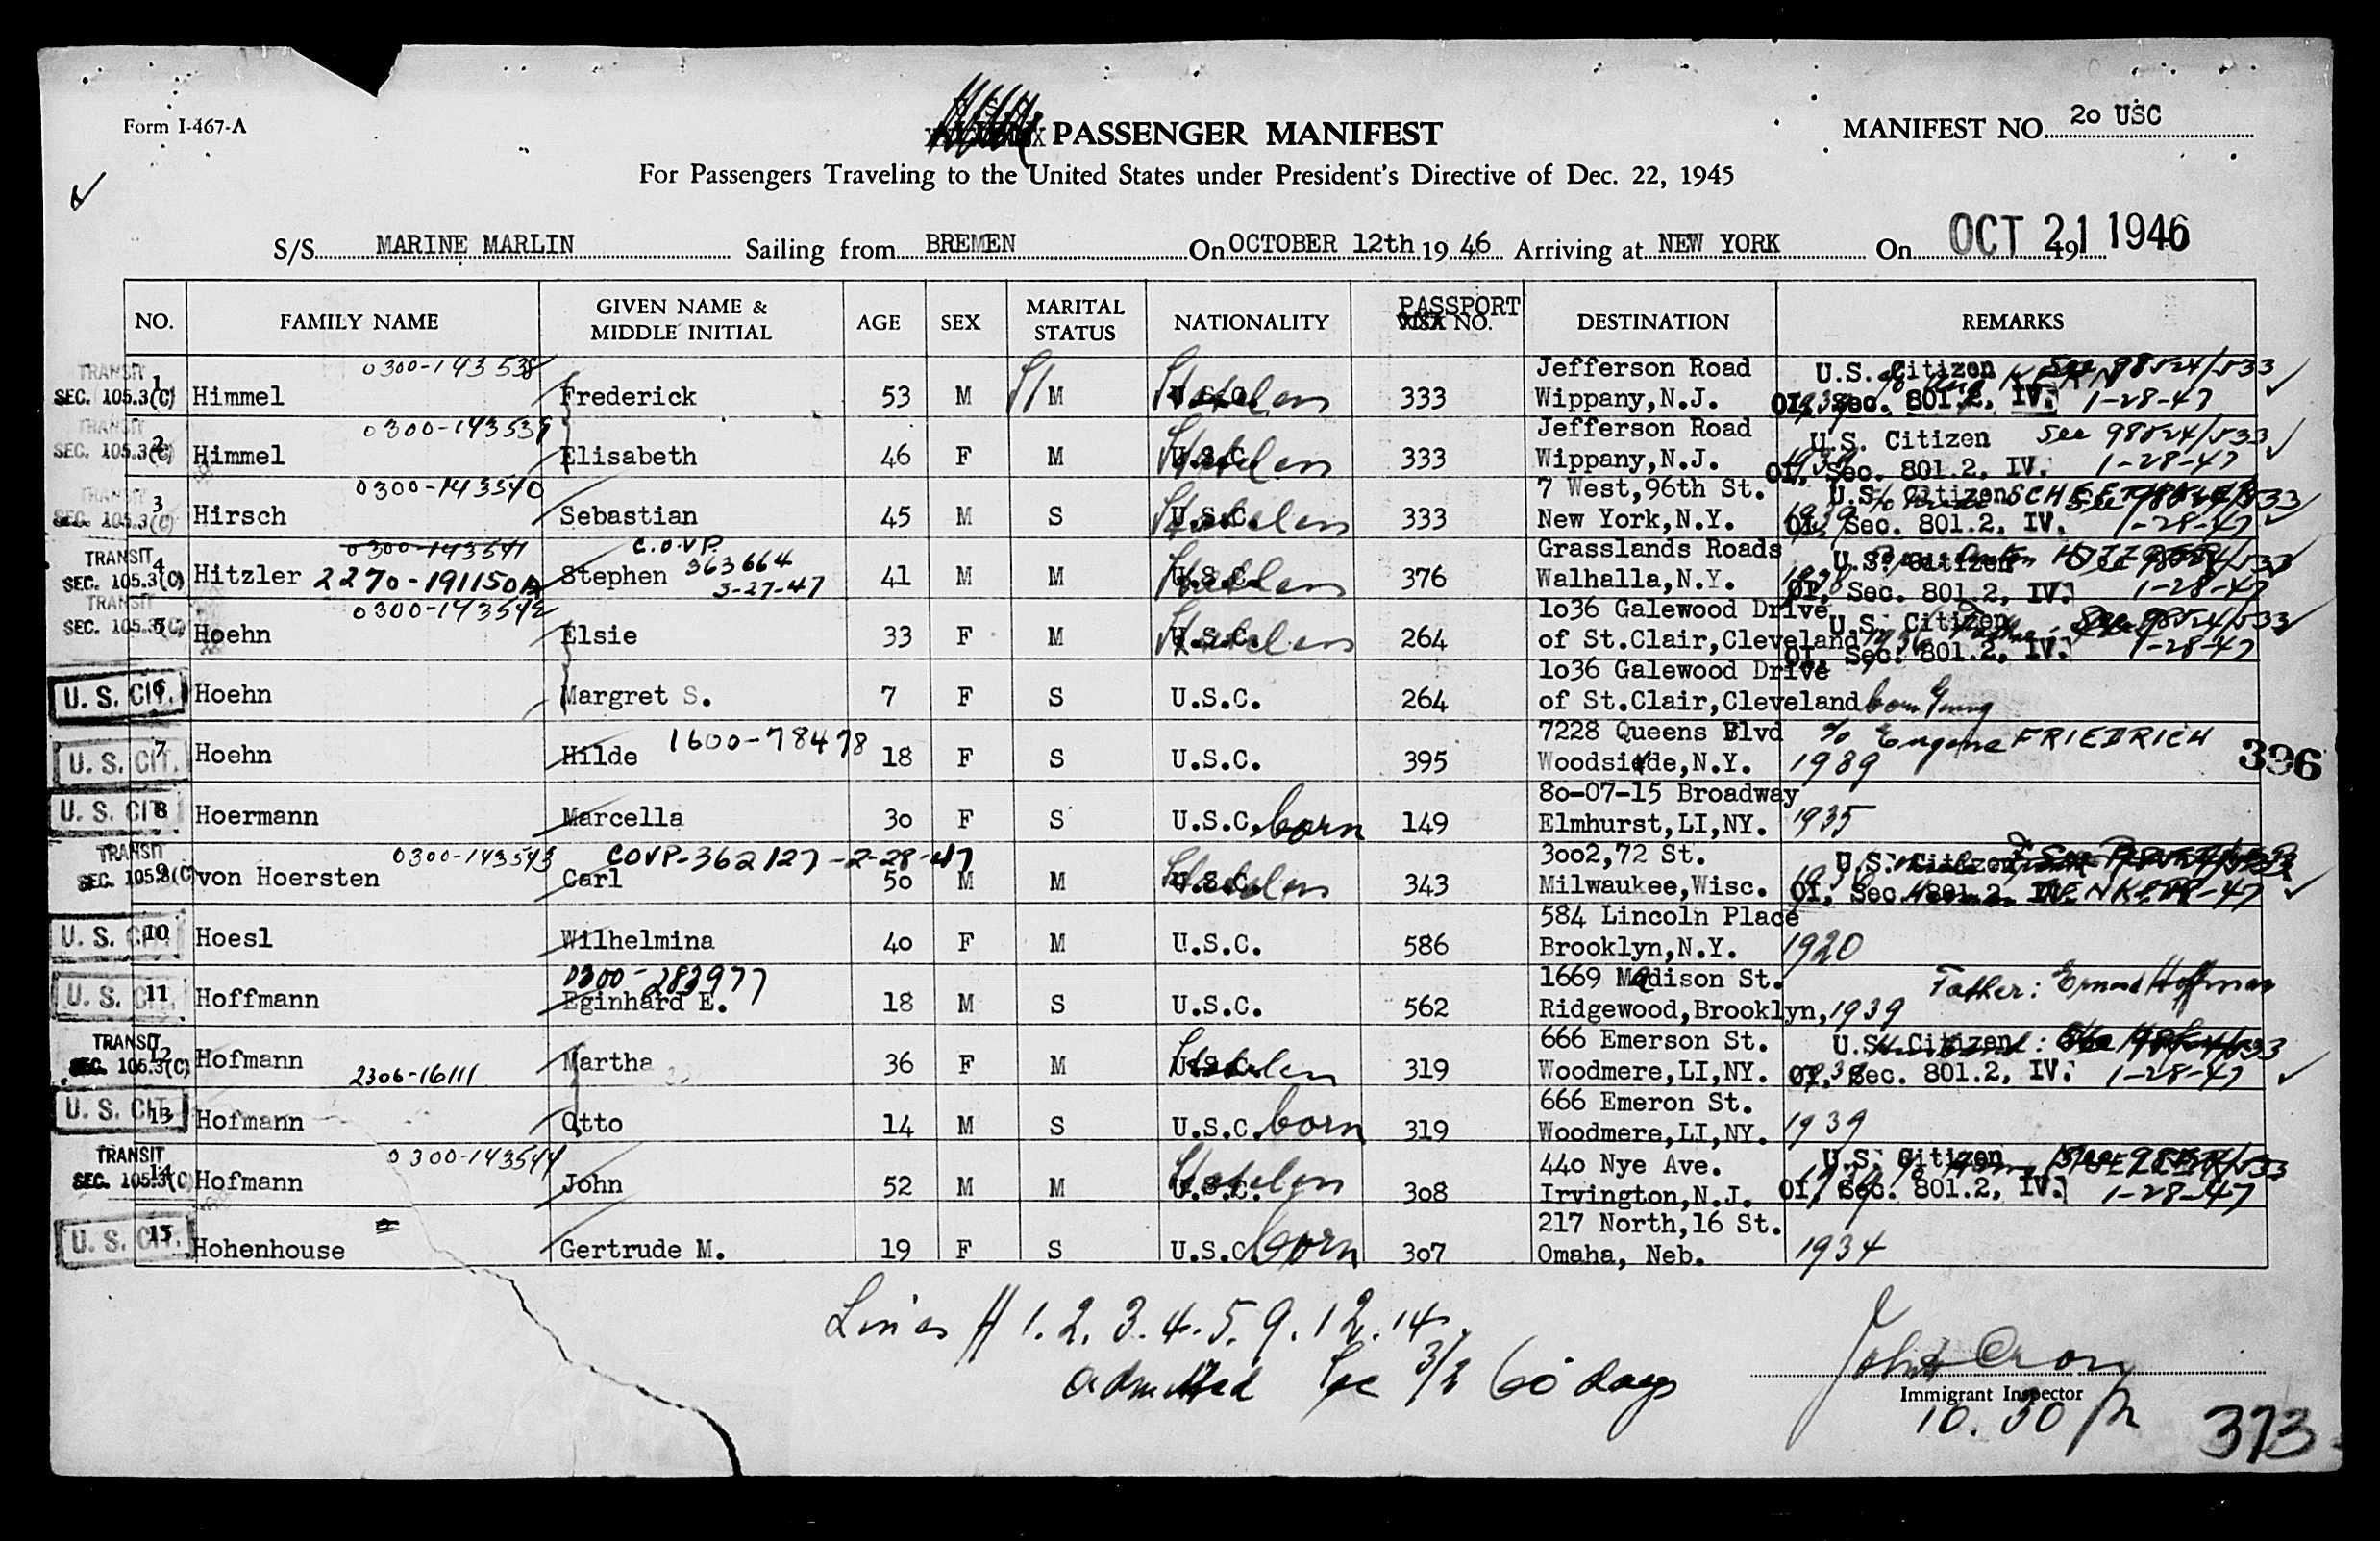 Form I-467-A
PASSENGER MANIFEST
MANIFEST NO. 20 USC
For Passengers Traveling to the United States under President's Directive of Dec. 22, 1945
S/S MARINE MARLIN Sailing from BREMEN On OCTOBER 12th 19 46 Arriving at NEW YORK On OCT 21 1946
NO. FAMILY NAME GIVEN NAME & MIDDLE INITIAL AGE SEX MARITAL STATUS NATIONALITY PASSPORT NO. DESTINATION REMARKS
TRANSIT 0300-143538 Jefferson Road U.S. Citizen See 98524/533
SEC. 105.3(C) 1 Himmel Frederick 53 M M U.S.C. 333 Wippany,N.J. OI, Sec. 801.2, IV. 1-28-47
TRANSIT 0300-143539 Jefferson Road U.S. Citizen See 98524/533
SEC. 105.3(C) 2 Himmel Elisabeth 46 F M U.S.C. 333 Wippany,N.J. OI, Sec. 801.2, IV. 1-28-47
TRANSIT 0300-143540 7 West,96th St. U.S. Citizen
SEC. 105.3(C) 3 Hirsch Sebastian 45 M S U.S.C. 333 New York,N.Y. OI, Sec. 801.2, IV. 1-28-47
TRANSIT 0300-143541 C.O.V.P. 363664 Grasslands Roads U.S. Citizen
SEC. 105.3(C) 4 Hitzler 2270-191150 Stephen 3-27-47 41 M M U.S.C. 376 Walhalla,N.Y. OI, Sec. 801.2, IV. 1-28-47
TRANSIT 0300-143542 1o36 Galewood Drive U.S. Citizen See 98524/533
SEC. 105.3(C) 5 Hoehn Elsie 33 F M U.S.C. 264 of St.Clair,Cleveland OI, Sec. 801.2, IV. 1-28-47
1o36 Galewood Drive
U. S. CIT. 6 Hoehn Margret S. 7 F S U.S.C. 264 of St.Clair,Cleveland born
7228 Queens Blvd c/o Eugene FRIEDRICH
U. S. CIT. 7 Hoehn Hilde 1600-78478 18 F S U.S.C. 395 Woodside,N.Y. 1939
396
8o-07-15 Broadway
U. S. CIT. 8 Hoermann Marcella 3o F S U.S.C. born 149 Elmhurst,LI,NY. 1935
TRANSIT 0300-143543 COVP-362127-2-28-47 3oo2,72 St. U.S. Citizen
SEC. 105.3(C) 9 von Hoersten Carl 5o M M U.S.C. 343 Milwaukee,Wisc. OI, Sec. 801.2, IV.
584 Lincoln Place
U. S. CIT. 10 Hoesl Wilhelmina 4o F M U.S.C. 586 Brooklyn,N.Y. 1920
0300-283977 1669 Madison St. Father: Hoffman
U. S. CIT. 11 Hoffmann Eginhard E. 18 M S U.S.C. 562 Ridgewood,Brooklyn, 1939
TRANSIT 666 Emerson St. U.S. Citizen
SEC. 105.3(C) 12 Hofmann 2306-16111 Martha 36 F M U.S.C. 319 Woodmere,LI,NY. OI, Sec. 801.2, IV. 1-28-47
666 Emeron St.
U. S. CIT. 13 Hofmann Otto 14 M S U.S.C. born 319 Woodmere,LI,NY. 1939
TRANSIT 0300-143544 44o Nye Ave. U.S. Citizen
SEC. 105.3(C) 14 Hofmann John 52 M M U.S.C. 3o8 Irvington,N.J. OI, Sec. 801.2, IV. 1-28-47
217 North,16 St.
U. S. CIT. 15 Hohenhouse Gertrude M. 19 F S U.S.C. born 3o7 Omaha, Neb. 1934
Lines # 1. 2. 3. 4. 5. 9. 12. 14.
admitted Sec 3/2 60 days
Immigrant Inspector
10.30
373